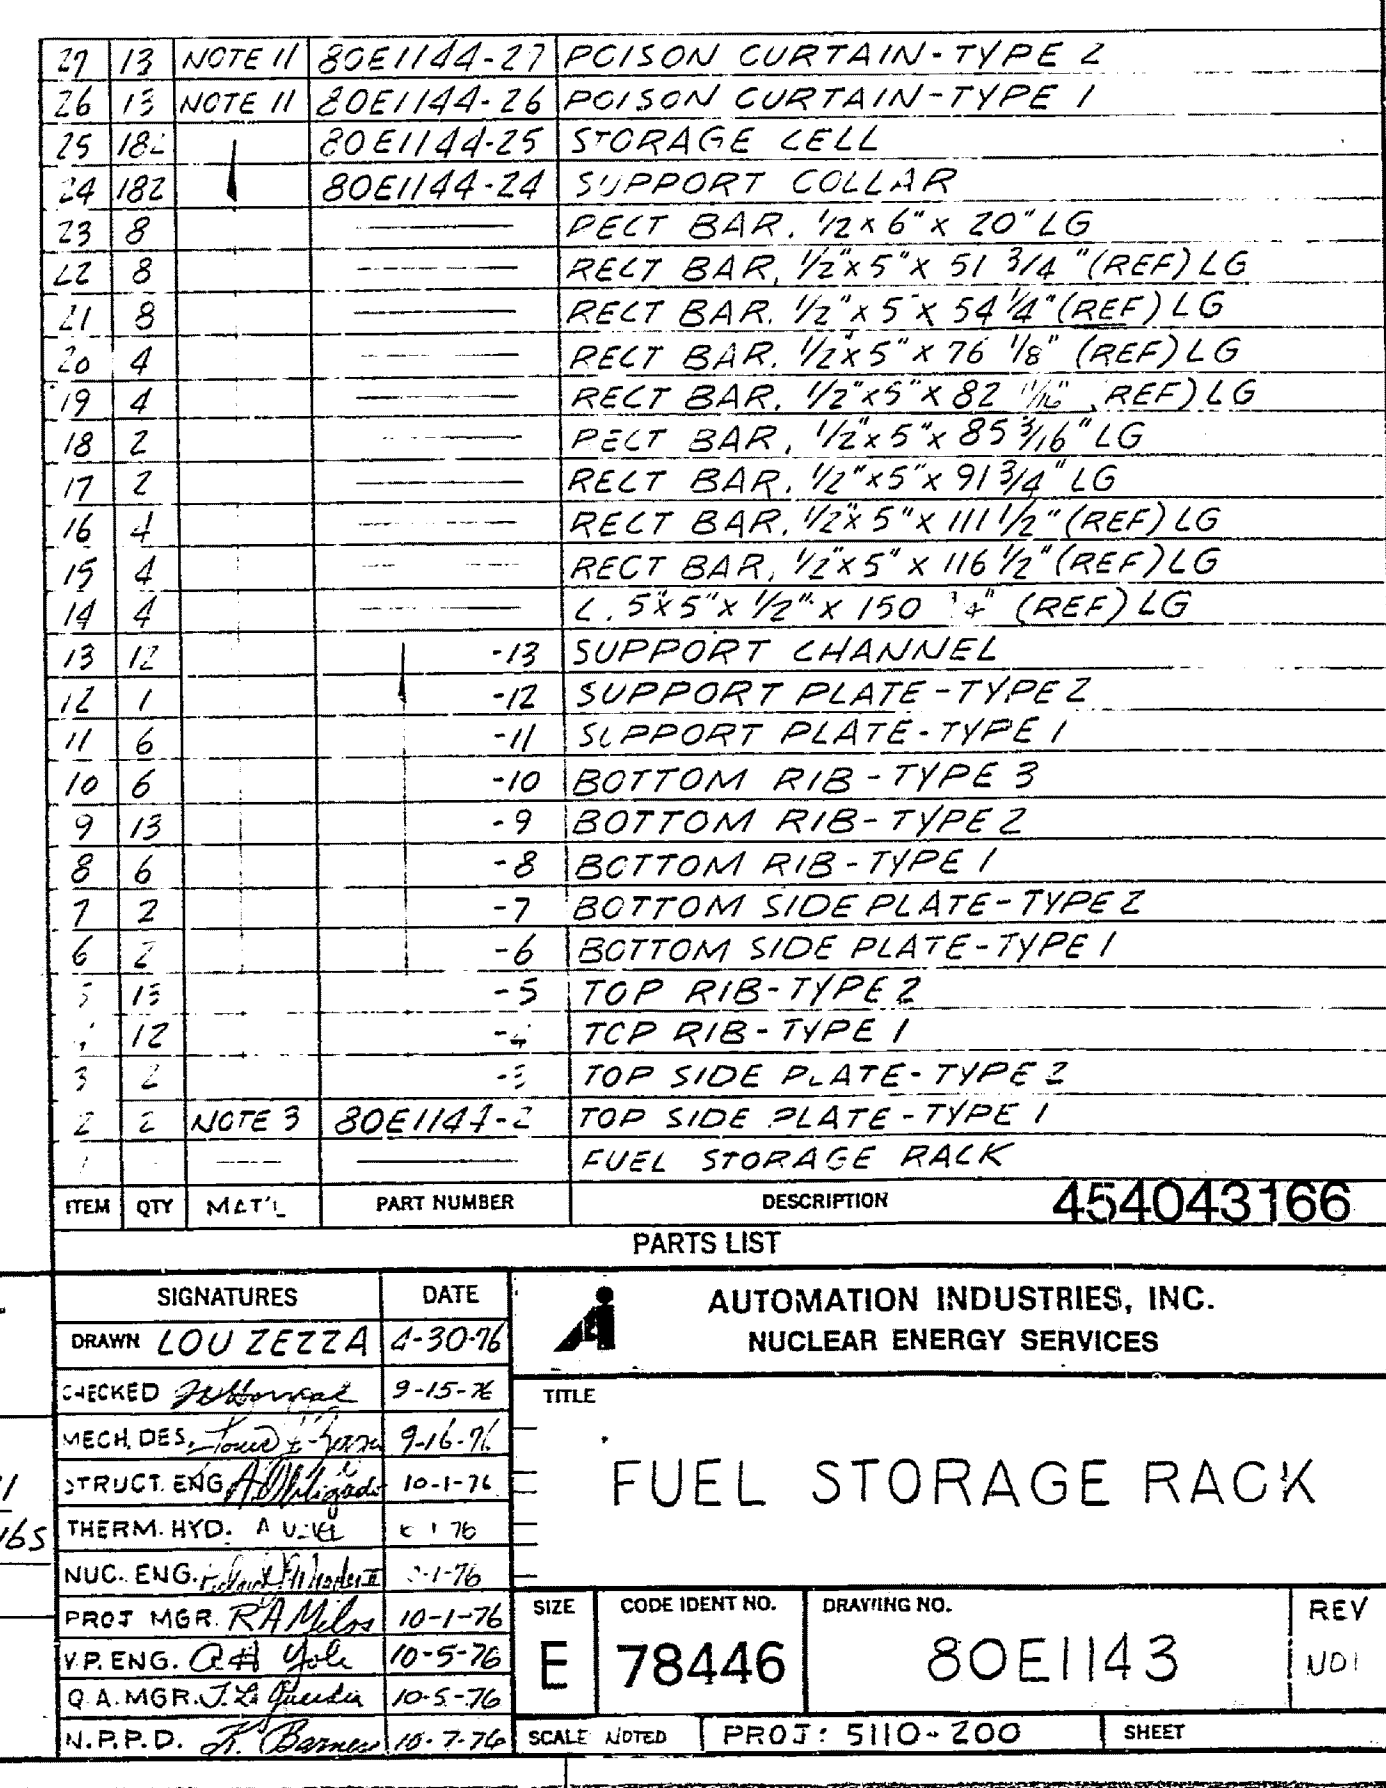 27 13 NOTE 11 80E1144-27 POISON CURTAIN-TYPE 2
26 13 NOTE 11 80E1144-26 POISON CURTAIN-TYPE 1
25 182 80E1144-25 STORAGE CELL
24 182 80E1144-24 SUPPORT COLLAR
23 8 RECT BAR, 1/2 x 6" x 20" LG
22 8 RECT BAR, 1/2" x 5" x 51 3/4" (REF) LG
21 8 RECT BAR. 1/2" x 5 x 54 1/4" (REF) LG
20 4 RECT BAR. 1/2" x 5" x 76 1/8" (REF) LG
19 4 RECT BAR. 1/2" x 5" x 82 11/16" (REF) LG
18 2 RECT BAR, 1/2" x 5" x 85 3/16" LG
17 2 RECT BAR. 1/2" x 5" x 91 3/4" LG
16 4 RECT BAR. 1/2" x 5" x 111 1/2" (REF) LG
15 4 RECT BAR, 1/2" x 5" x 116 1/2" (REF) LG
14 4 L. 5" x 5" x 1/2" x 150 (REF) LG
13 12 -13 SUPPORT CHANNEL
12 1 -12 SUPPORT PLATE-TYPE 2
11 6 -11 SUPPORT PLATE-TYPE 1
10 6 -10 BOTTOM RIB-TYPE 3
9 13 -9 BOTTOM RIB-TYPE 2
8 6 -8 BOTTOM RIB-TYPE 1
7 2 -7 BOTTOM SIDE PLATE-TYPE 2
6 2 -6 BOTTOM SIDE PLATE-TYPE 1
5 13 -5 TOP RIB-TYPE 2
12 -4 TOP RIB-TYPE 1
3 2 -3 TOP SIDE PLATE-TYPE 2
2 2 NOTE 3 80E1144-2 TOP SIDE PLATE-TYPE 1
1 FUEL STORAGE RACK
ITEM QTY MAT'L PART NUMBER DESCRIPTION 454043166
PARTS LIST
SIGNATURES DATE
DRAWN LOU ZEZZA 4-30-76
CHECKED 9-15-76
MECH. DES. 9-16-76
STRUCT. ENG 10-1-76
THERM. HYD. 76
NUC. ENG. -1-76
PROJ MGR. RA Milos 10-1-76
V.P. ENG. 10-5-76
Q.A. MGR. 10-5-76
N.P.P.D. K. Barnes 10-7-76
AUTOMATION INDUSTRIES, INC.
NUCLEAR ENERGY SERVICES
TITLE
FUEL STORAGE RACK
SIZE
E
CODE IDENT NO.
78446
DRAWING NO.
80E1143
REV
U01
SCALE NOTED
PROJ: 5110-200
SHEET